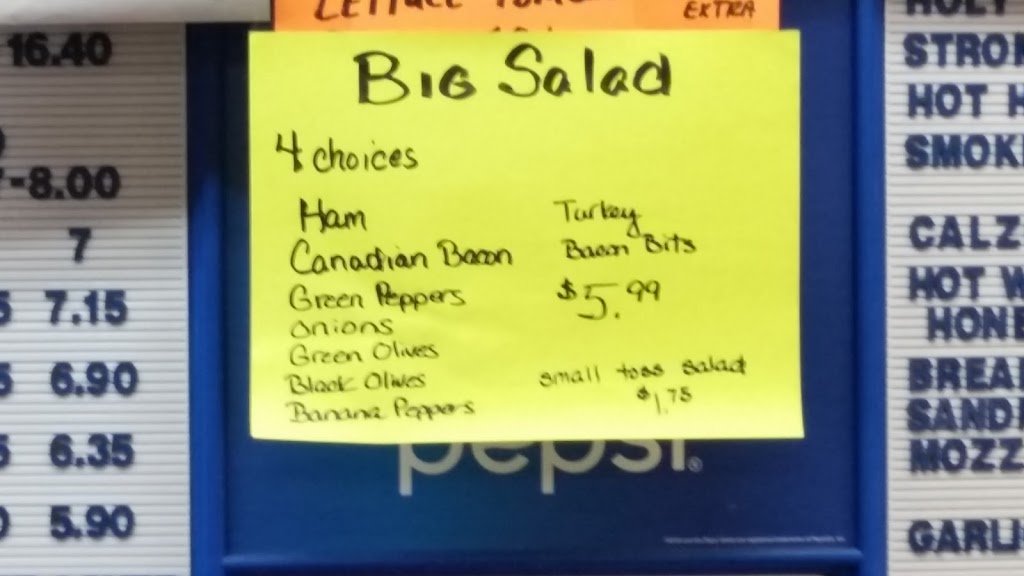 EXTRA
16.40
-8.00
7
7.15
6.90
6.35
5.90
BIG Salad
4 choices
Ham Turkey
Canadian Bacon Bacon Bits
Green Peppers $5.99
onions
Green Olives
Black Olives small toss salad
Banana Peppers $1.75
pepsi
HOT
CALZ
HOT W
HONE
BREA
SAND
MOZZ
GARLI